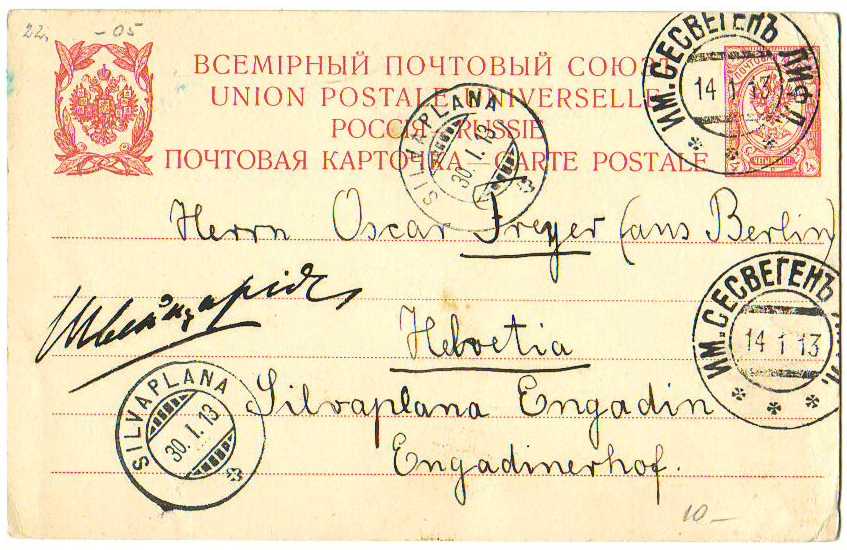 22. -05
ВСЕМІРНЫЙ ПОЧТОВЫЙ СОЮЗЪ
UNION POSTALE UNIVERSELLE
РОССІЯ RUSSIE
ПОЧТОВАЯ КАРТОЧКА—CARTE POSTALE
ИМ. СЕСВЕГЕНЪ ЛИФЛ.
14 1 13
SILVAPLANA
30. I. 13
Herrn Oscar Freyer (aus Berlin)
Швейцарія
Helvetia
ИМ. СЕСВЕГЕНЪ
14 1 13
Silvaplana Engadin
SILVAPLANA
30. I. 13
Engadinerhof.
10—